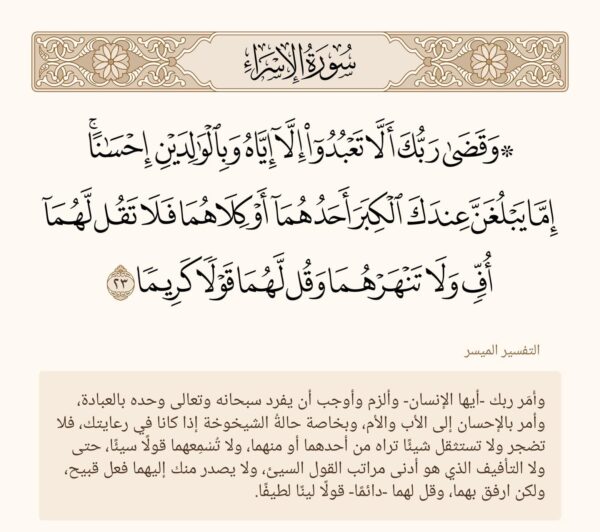 سُورَةُ الإِسْرَاءِ
۞ وَقَضَىٰ رَبُّكَ أَلَّا تَعْبُدُوٓا۟ إِلَّآ إِيَّاهُ وَبِٱلْوَٰلِدَيْنِ إِحْسَـٰنًا ۚ
إِمَّا يَبْلُغَنَّ عِندَكَ ٱلْكِبَرَ أَحَدُهُمَآ أَوْ كِلَاهُمَا فَلَا تَقُل لَّهُمَآ
أُفٍّ وَلَا تَنْهَرْهُمَا وَقُل لَّهُمَا قَوْلًا كَرِيمًا ٢٣
التفسير الميسر
وأمَر ربك -أيها الإنسان- وألزم وأوجب أن يفرد سبحانه وتعالى وحده بالعبادة،
وأمر بالإحسان إلى الأب والأم، وبخاصة حالةُ الشيخوخة إذا كانا في رعايتك، فلا
تضجر ولا تستثقل شيئًا تراه من أحدهما أو منهما، ولا تُسْمِعهما قولًا سيئًا، حتى
ولا التأفيف الذي هو أدنى مراتب القول السيئ، ولا يصدر منك إليهما فعل قبيح،
ولكن ارفق بهما، وقل لهما -دائمًا- قولًا لينًا لطيفًا.